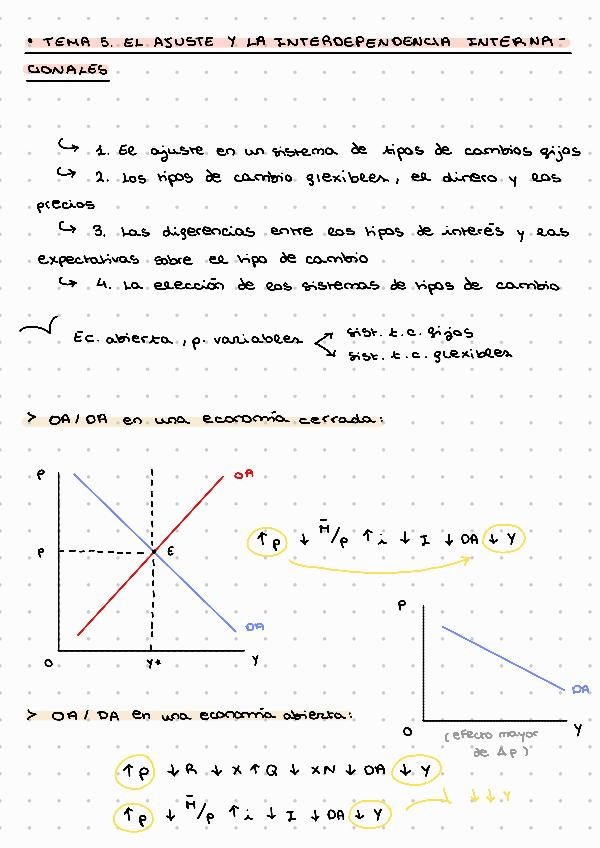 • TEMA 5. EL AJUSTE Y LA INTERDEPENDENCIA INTERNA-
CIONALES
↳ 1. El ajuste en un sistema de tipos de cambios fijos
↳ 2. Los tipos de cambio flexibles, el dinero y los
precios
↳ 3. Las diferencias entre los tipos de interés y las
expectativas sobre el tipo de cambio
↳ 4. La elección de los sistemas de tipos de cambio
Ec. abierta, p. variables
sist. t.c. fijos
sist. t.c. flexibles
> OA/DA en una economía cerrada:
P
OA
P
E
DA
O
Y*
Y
↑P ↓ M̄/P ↑i ↓ I ↓ DA ↓ Y
P
DA
O
Y
(efecto mayor
de ΔP)
> OA/DA en una economía abierta:
↑P ↓R ↓X ↑Q ↓XN ↓DA ↓Y
↑P ↓ M̄/P ↑i ↓ I ↓DA ↓Y
↓↓Y